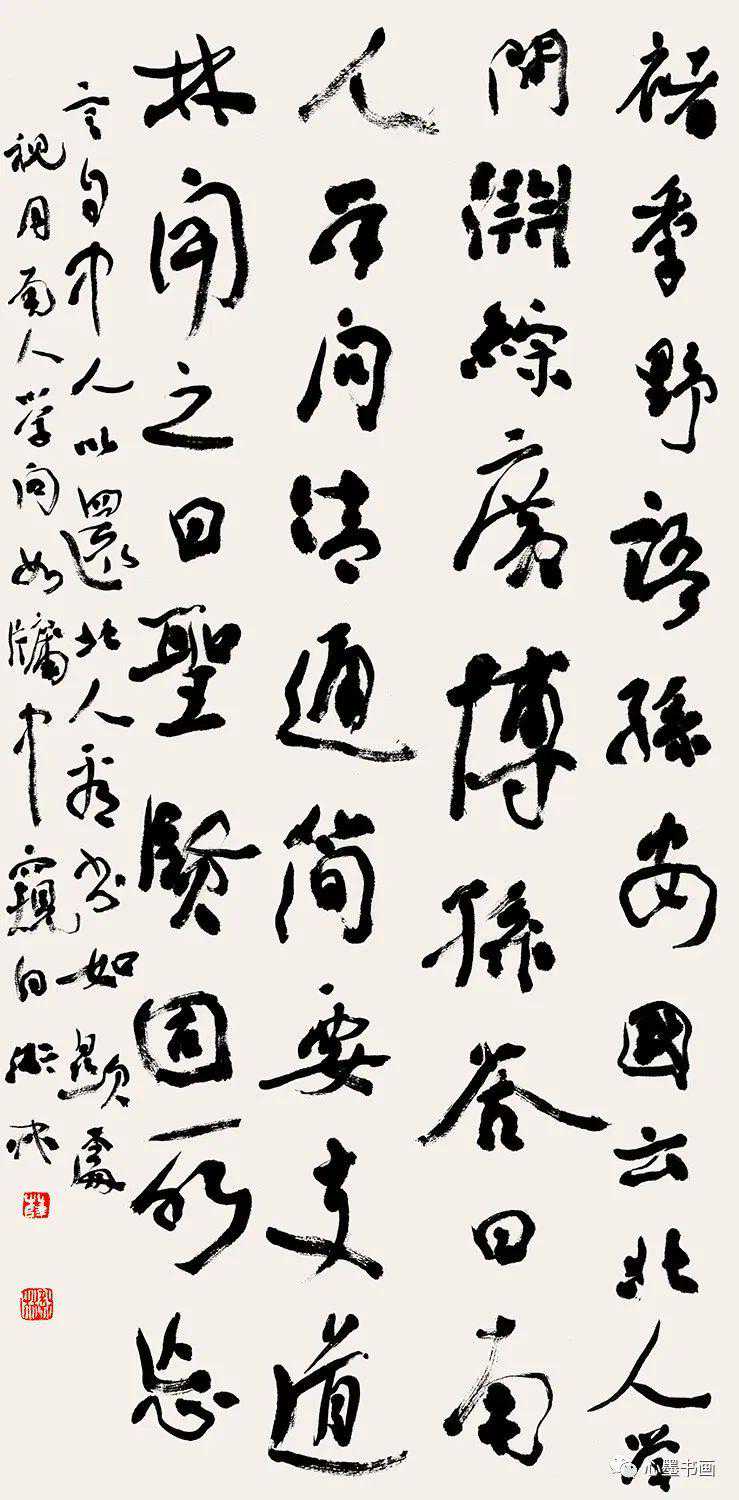 褚季野語孫安國云北人學
問淵綜廣博孫答曰南
人學問清通簡要支道
林聞之曰聖賢固所忘
言自中人以還北人看書如顯處
視月南人學問如牖中窺日
心墨书画